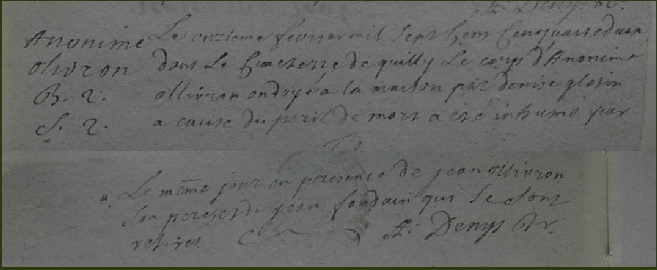 Anonime
olivron
B. 2.
S. 2.
Le onzieme fevrier mil sept Cent Cinquante deux
dans Le Cimeterre de quilly Le corps d'Anonime
ollivron ondoyé a la maison par denise glotin
a cause du peril de mort a eté inhumé par
Le même jour en presence de jean ollivron
Son pere et de jean foudain qui se sont
retirés. Denys